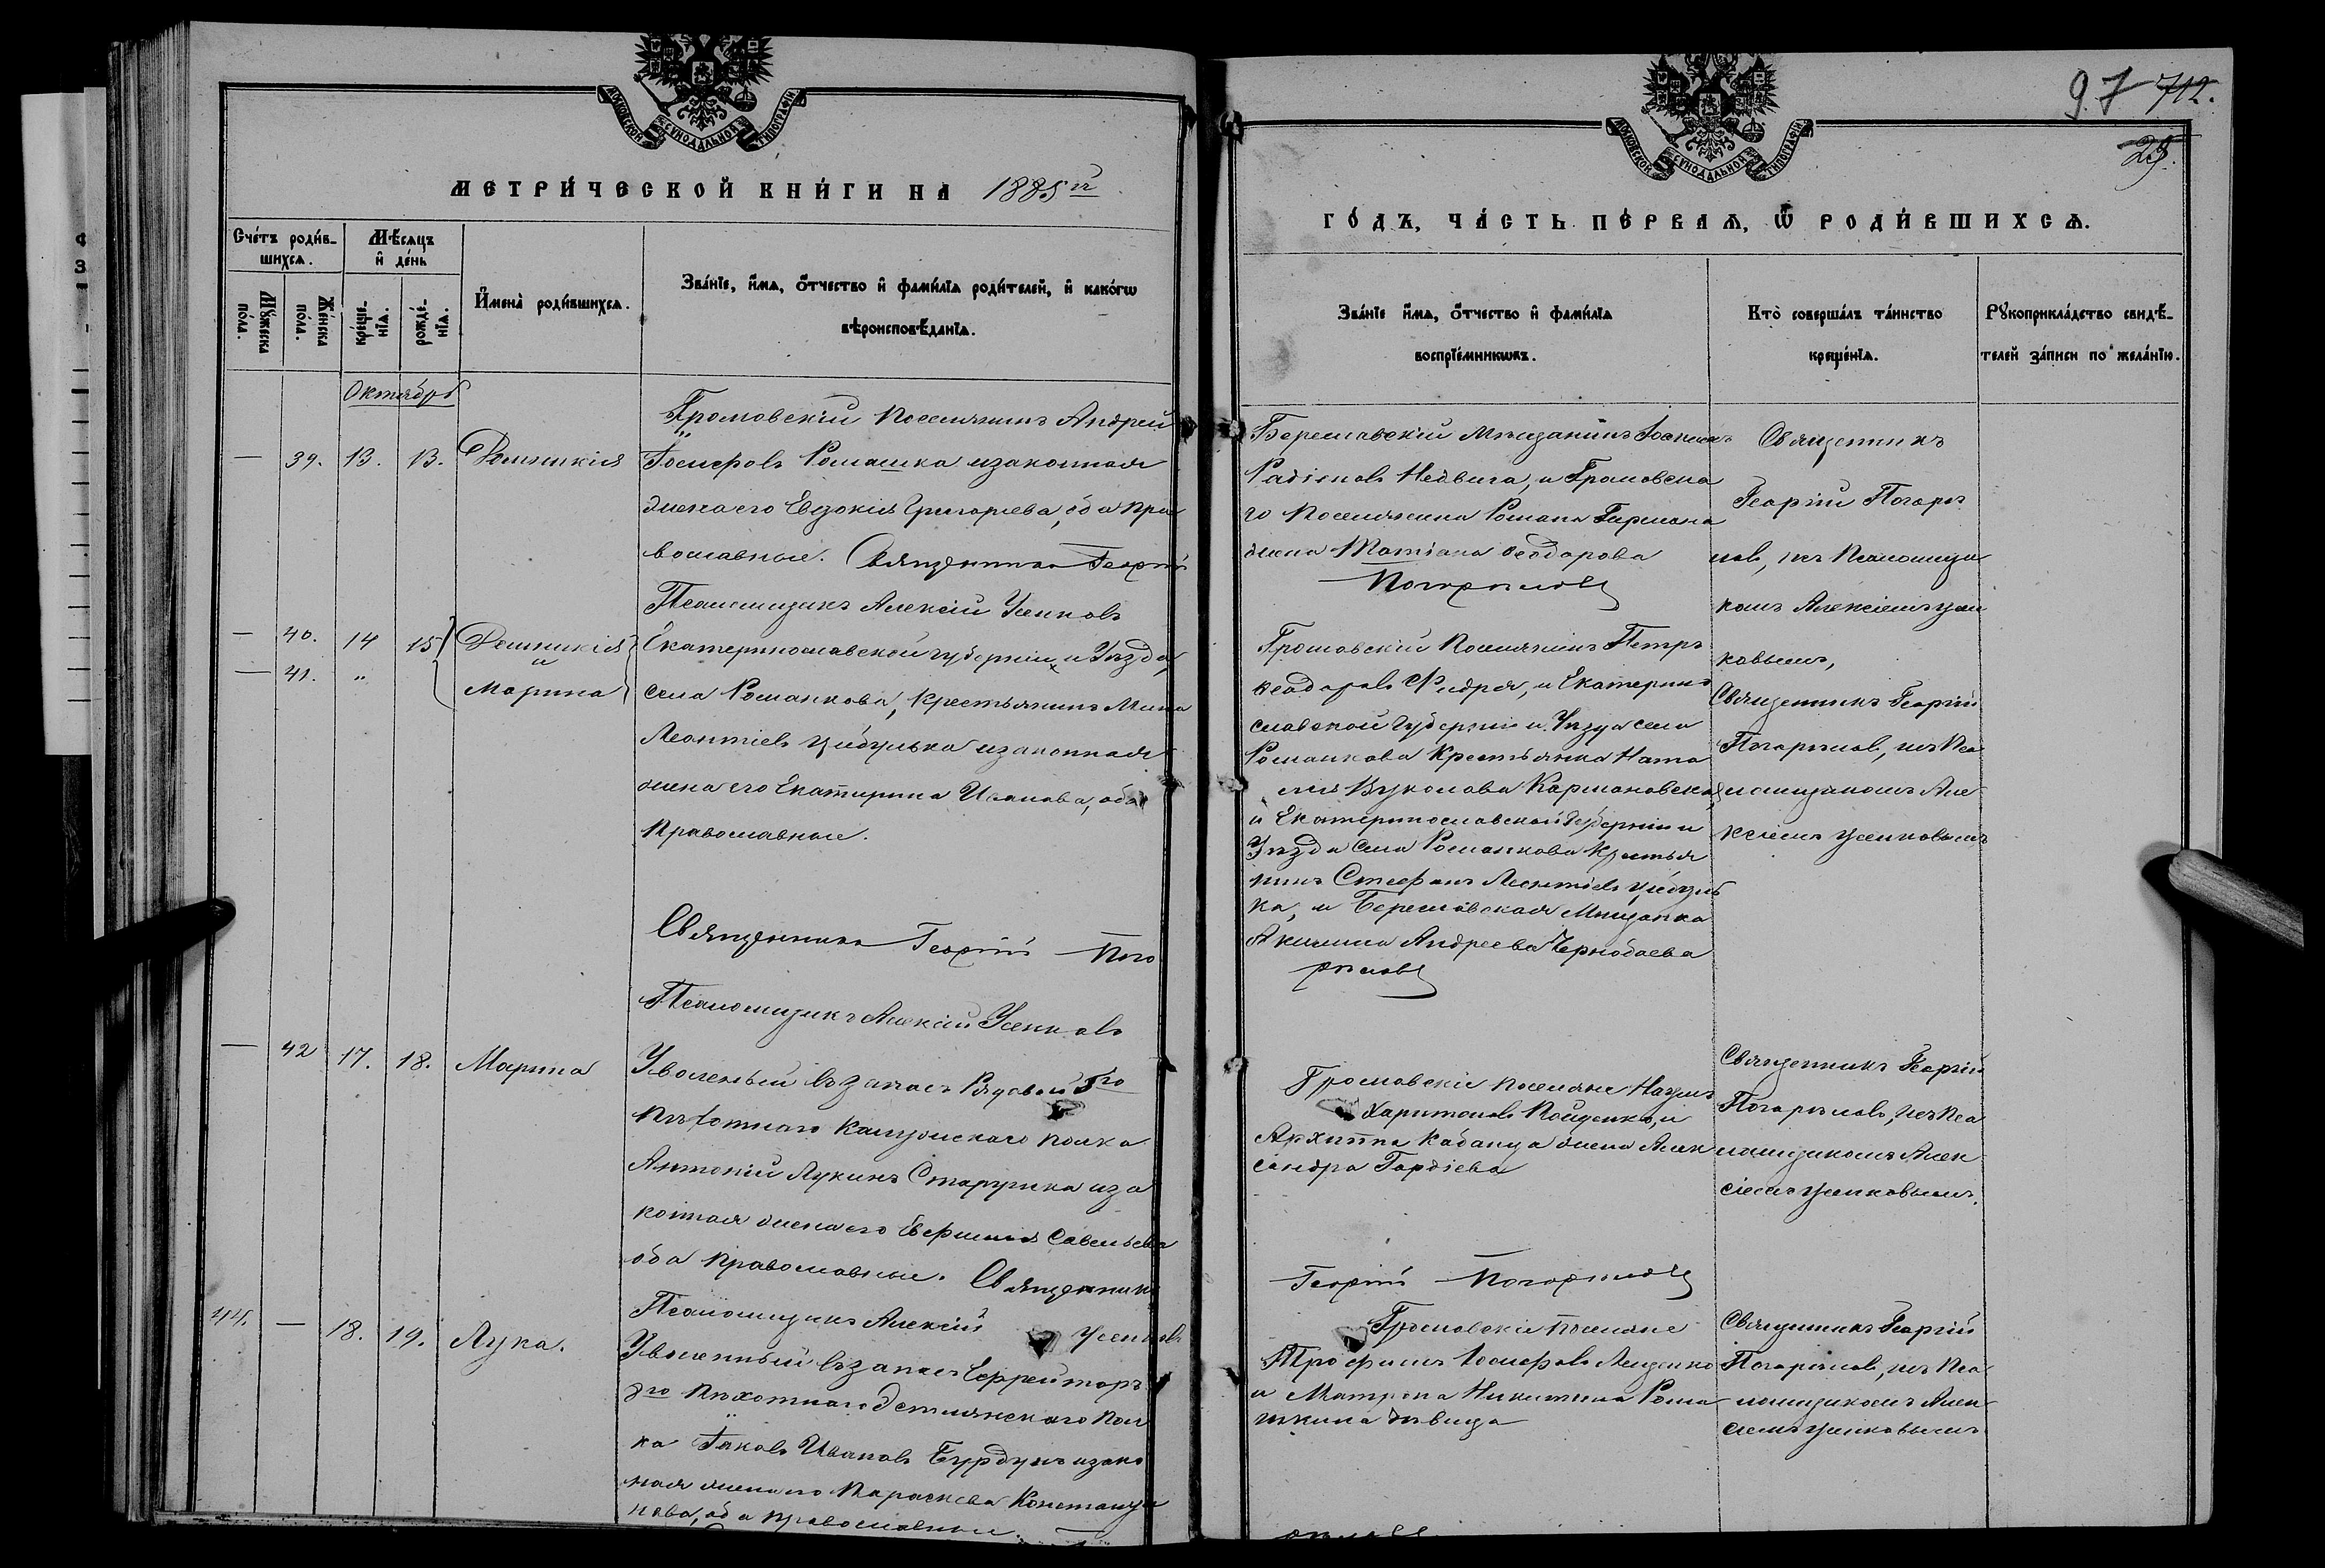 МОСКОВСКОЙ СѴНОДАЛЬНОЙ ТИПОГРАФІИ
МЕТРИ́ЧЕСКОЙ КНИ́ГИ НА 1885й
Сче́тъ роди́в-
шихсѧ.
Мѣ́сѧцъ
и҆ де́нь
Мꙋ́жеска
по́ла.
Же́нска
по́ла.
креще-
нїѧ.
рожде́-
нїѧ.
И҆мена̀ роди́вшихсѧ.
Зва́нїе, и҆́мѧ, ѻ҆́тчество и҆ фамн́лїѧ роди́телей, и҆ како́гѡ
вѣроисповѣ́данїѧ.
Октябрь
— 39. 13. 13. Домникія
Громовскій поселянинъ Андрей
Іосифовъ Ромашка изаконная
жена его Евдокія Григорьева, оба пра
вославные. Священникъ Георгій
Псаломщикъ Алексій Усенковъ
— 40. 14 15 Домникія
и
— 41. " Марина
Екатеринославской губерніи и Уѣзда,
села Романкова, крестьянинъ Мина
Леонтіевъ Цыбулька изаконная
жена его Екатерина Иванова, оба
православные.
Священникъ Георгій Пого
Псаломщикъ Алексій Усенковъ
— 42 17. 18. Марина
Уволеный взапасъ Рядовой
пѣхотнаго полка
Антоній Лукинъ Старушка иза
конная жена его Евфимія Савельева
оба православные. Священникъ
Псаломщикъ Алексій Усенковъ
44. — 18. 19. Лука.
Уволенный взапасъ Ефрейторъ
пѣхотнаго пол
ка Іяковъ Ивановъ Бурдунъ изако
ная жена его Параскева Константи
нова, оба православные.
97 712.
29.
МОСКОВСКОЙ СѴНОДАЛЬНОЙ ТИПОГРАФІИ
ГО́ДЪ, ЧА́СТЬ ПЕ́РВАѦ, Ѡ҆ РОДИ́ВШИХСѦ.
Зва́нїе и҆́мѧ, ѻ҆́тчество и҆ фами́лїѧ
воспрїе́мникѡвъ.
Кто̀ соверша́лъ та́инство
креще́нїѧ.
Рꙋкоприкла́дство свидѣ́-
телей за́писи по жела́нїю.
Бериславскій мѣщанинъ
Радіоновъ Недвига, и Громовска
го поселянина Романа Германа
жена Татіана Ѳеодорова
Погорѣловъ
Священникъ
Георгій Погорѣ
ловъ, съ Псаломщи
комъ Алексіемъ Усен
ковымъ,
Громовскій поселянинъ Петръ
Ѳеодоровъ и Екатерино
славской губерніи и Уѣзда села
Романкова крестьянка Ната
лія Вуколова Кармановская
и Екатеринославской губерніи и
Уѣзда села Романкова крестья
нинъ Стефанъ Леонтіевъ Цыбуль
ка, и Бериславская мѣщанка
Акилина Андреева Чернобаева
рѣловъ
Священникъ Георгій
Погорѣловъ, съ Пса
ломщикомъ Але
ксіемъ Усенковымъ
Громовскіе поселяне Наумъ
Харитоновъ и
Архипа Кабанца жена Алек
сандра Гордіева
Священникъ Георгій
Погорѣловъ, съ Пса
ломщикомъ Алек
сіемъ Усенковымъ.
Георгій Погорѣловъ
Громовскіе поселяне
Трофимъ Іосифовъ Лещенко
и Матрона Никитина Рома
шкина дѣвица
Священникъ Георгій
Погорѣловъ, съ Пса
ломщикомъ Алек
сіемъ Усенковымъ